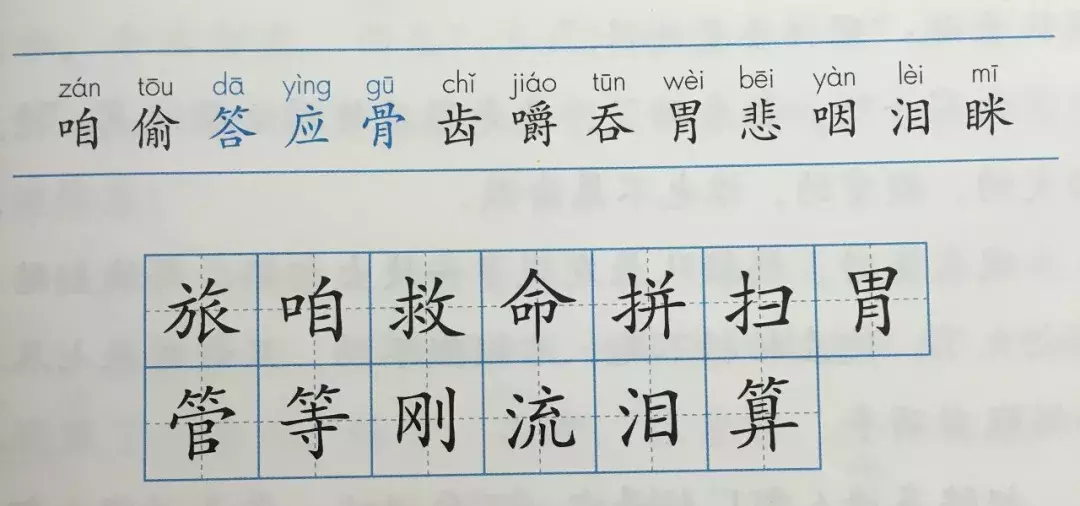 zán tōu dā yìng gū chǐ jiáo tūn wèi bēi yàn lèi mī
咱 偷 答 应 骨 齿 嚼 吞 胃 悲 咽 泪 眯
旅 咱 救 命 拼 扫 胃
管 等 刚 流 泪 算